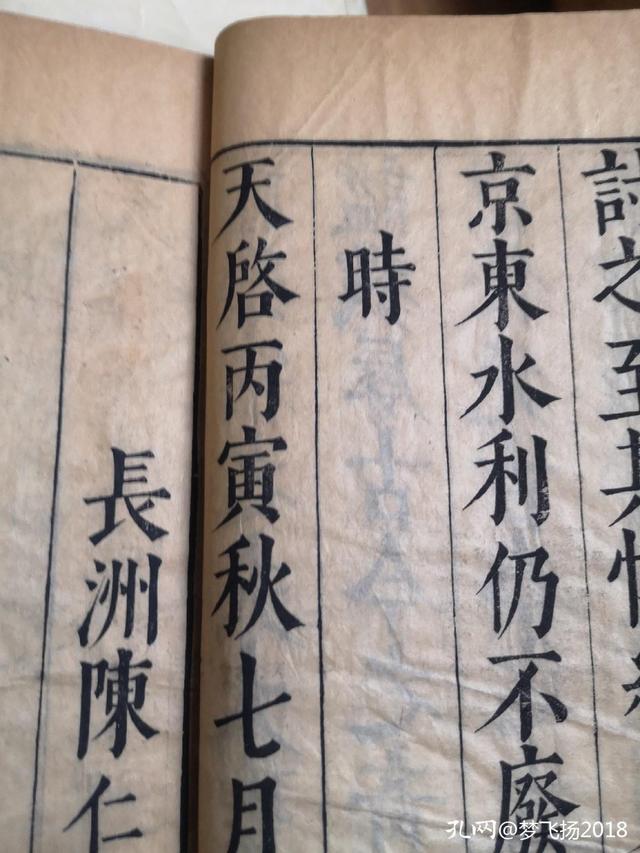 討之至其情
京東水利仍不廢
時
天啓丙寅秋七月
長洲陳仁
孔网@梦飞扬2018